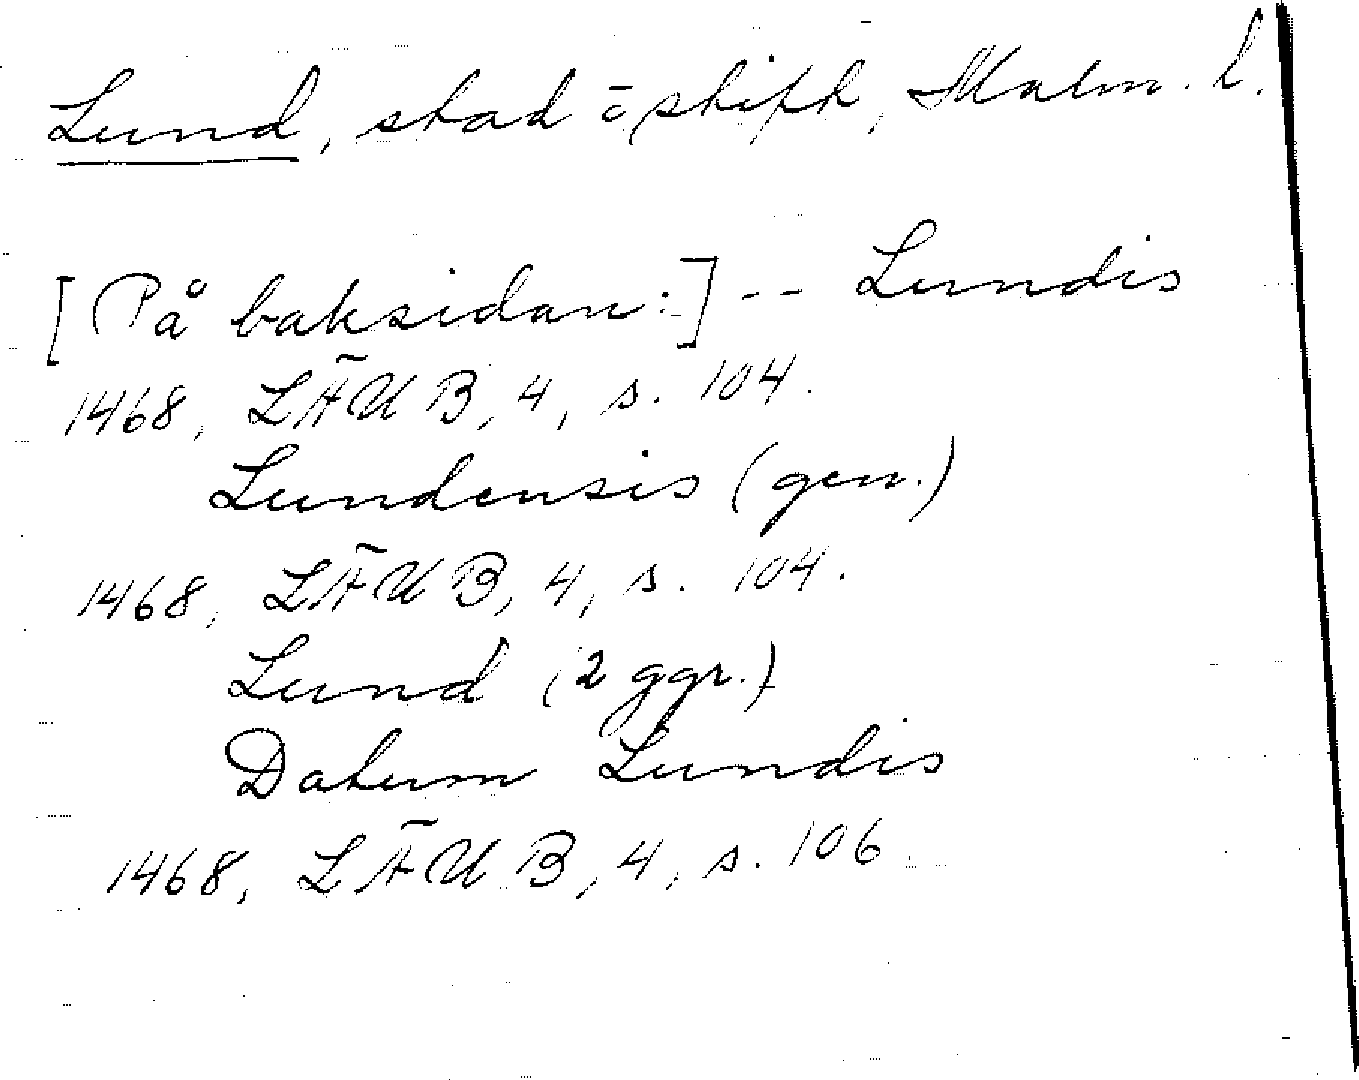 Lund, stad o stift, Malm. l.
[På baksidan:] -- Lundis
1468, LÄUB, 4, s. 104.
Lundensis (gen.)
1468, LÄUB, 4, s. 104.
Lund (2 ggr.)
Datum Lundis
1468, LÄUB, 4, s. 106